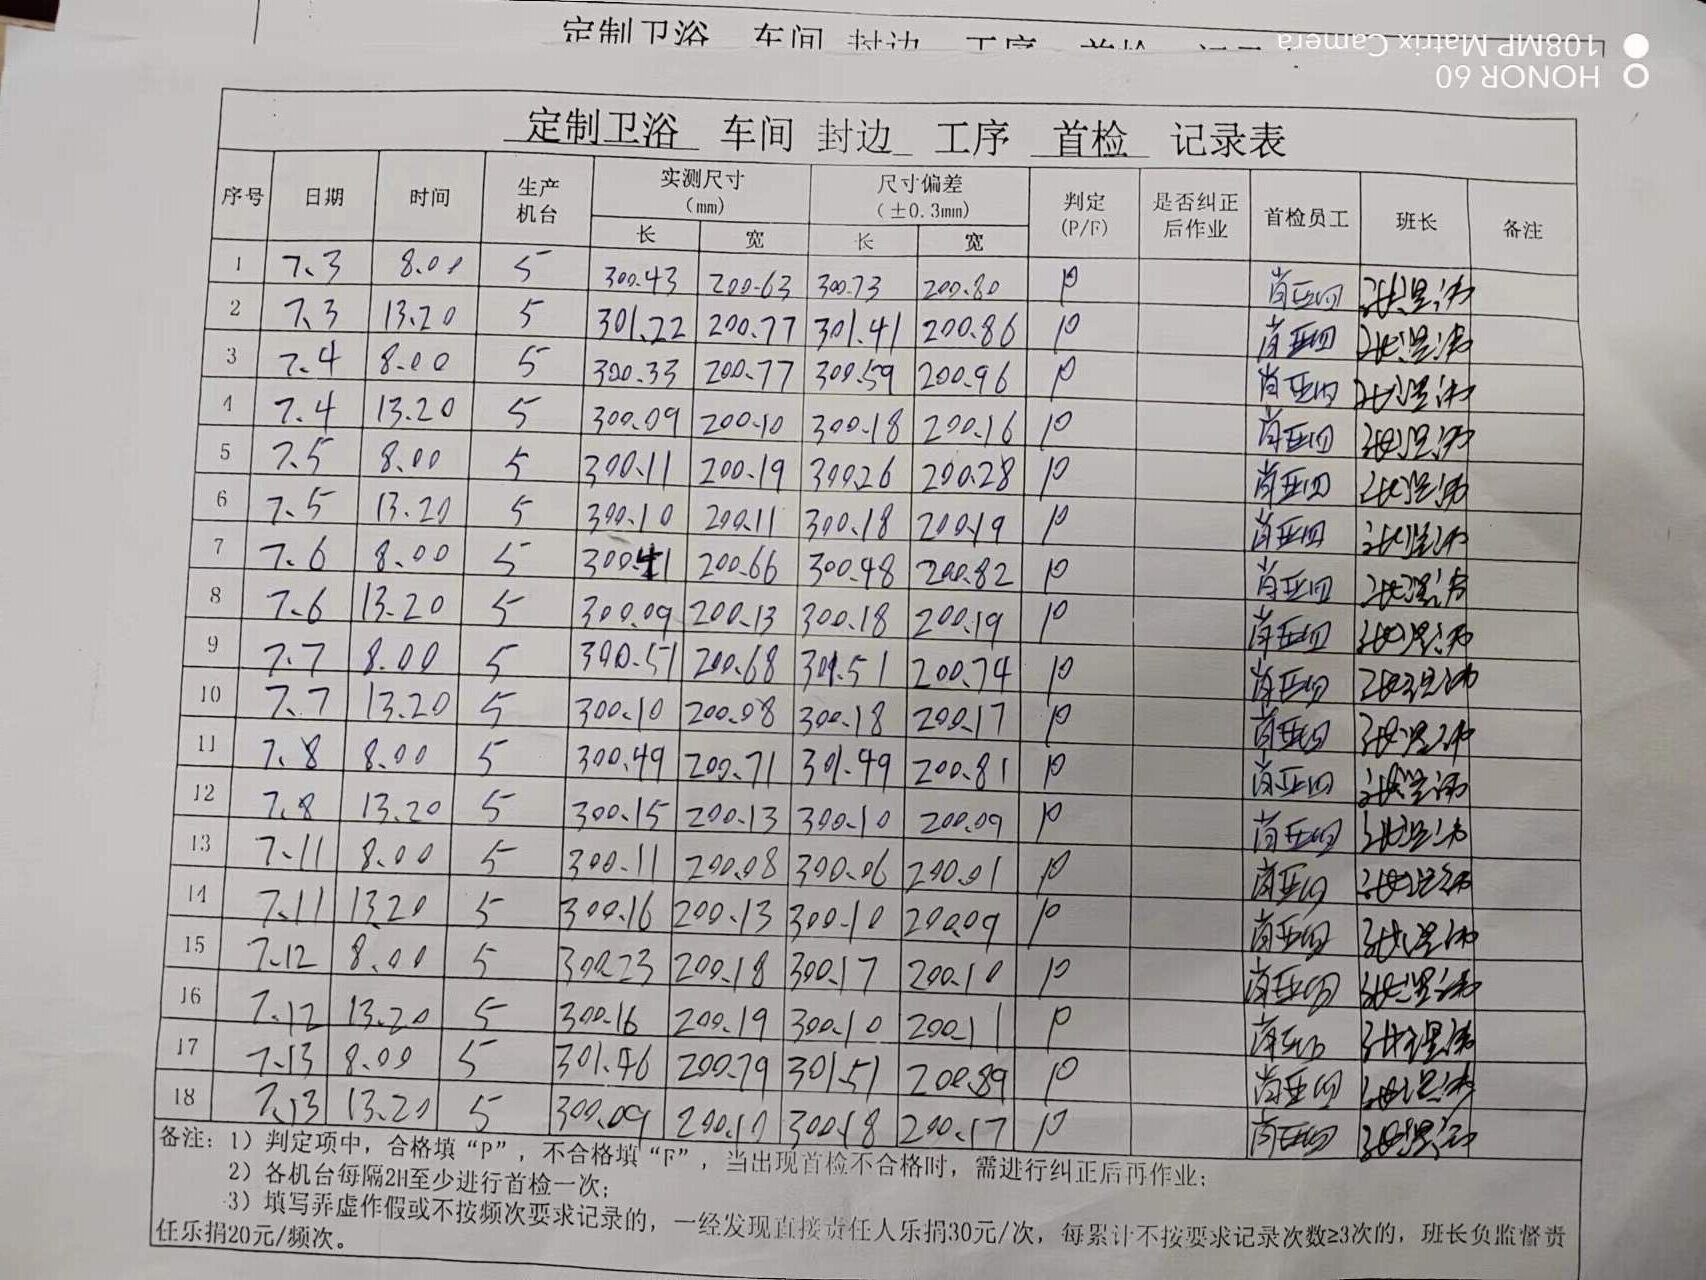 定制卫浴 车间 封边 工序 首检
108MP Matrix Camera
HONOR 60
定制卫浴 车间 封边 工序 首检 记录表
序号 日期 时间 生产机台 实测尺寸(mm) 尺寸偏差(±0.3mm) 判定(P/F) 是否纠正后作业 首检员工 班长 备注
长 宽 长 宽
1 7.3 8.00 5 300.43 200.63 300.73 200.80 P
2 7.3 13.20 5 301.22 200.77 301.41 200.86 P
3 7.4 8.00 5 300.33 200.77 300.59 200.96 P
4 7.4 13.20 5 300.09 200.10 300.18 200.16 P
5 7.5 8.00 5 300.11 200.19 300.26 200.28 P
6 7.5 13.20 5 300.10 200.11 300.18 200.19 P
7 7.6 8.00 5 300.41 200.66 300.48 200.82 P
8 7.6 13.20 5 300.09 200.13 300.18 200.19 P
9 7.7 8.00 5 300.51 200.68 301.51 200.74 P
10 7.7 13.20 5 300.10 200.08 300.18 200.17 P
11 7.8 8.00 5 300.49 200.71 301.49 200.81 P
12 7.8 13.20 5 300.15 200.13 300.10 200.09 P
13 7.11 8.00 5 300.11 200.08 300.06 200.01 P
14 7.11 13.20 5 300.16 200.13 300.10 200.09 P
15 7.12 8.00 5 300.23 200.18 300.17 200.10 P
16 7.12 13.20 5 300.16 200.19 300.10 200.11 P
17 7.13 8.00 5 301.46 200.79 301.51 200.89 P
18 7.13 13.20 5 300.09 200.10 300.18 200.17 P
备注：1）判定项中，合格填“P”，不合格填“F”，当出现首检不合格时，需进行纠正后再作业；
2）各机台每隔2H至少进行首检一次；
3）填写弄虚作假或不按频次要求记录的，一经发现直接责任人乐捐30元/次，每累计不按要求记录次数≥3次的，班长负监督责
任乐捐20元/频次。